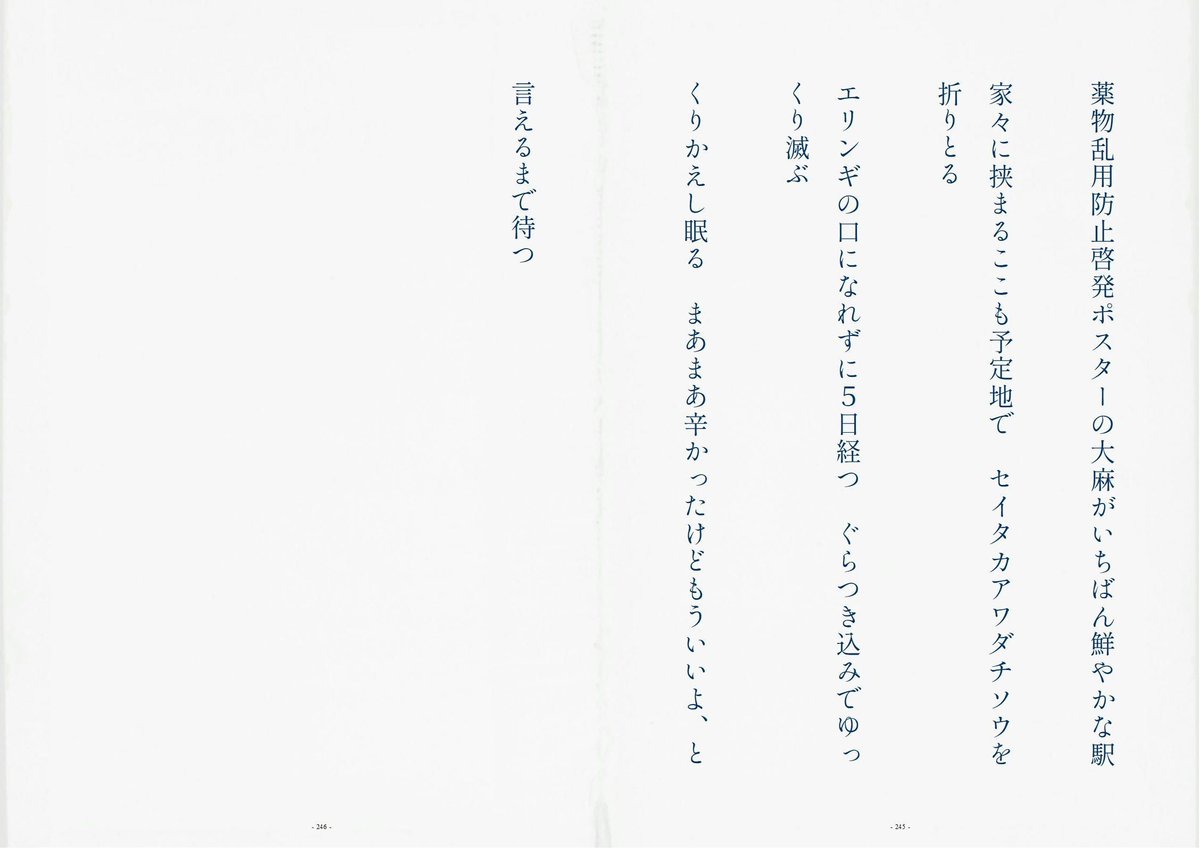 薬物乱用防止啓発ポスターの大麻がいちばん鮮やかな駅
家々に挟まるここも予定地で　セイタカアワダチソウを
折りとる
エリンギの口になれずに５日経つ　ぐらつき込みでゆっ
くり滅ぶ
くりかえし眠る　まあまあ辛かったけどもういいよ、と
- 245 -
言えるまで待つ
- 246 -